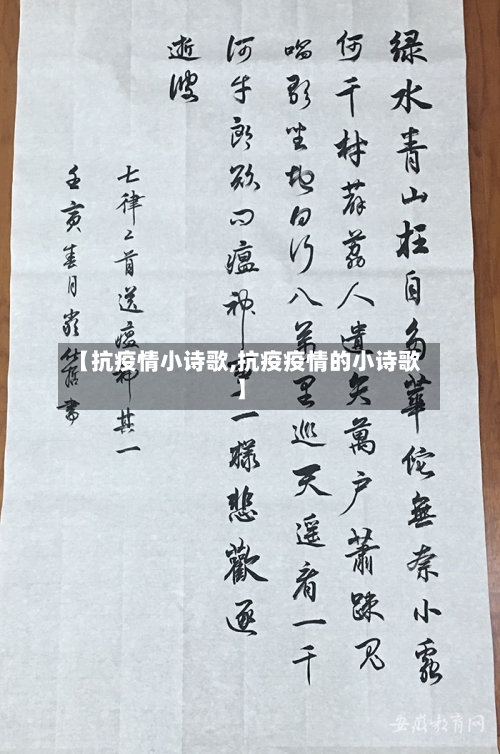 绿水青山枉自多華佗無奈小蟲
何千村薜荔人遺矢萬户蕭疎鬼
唱歌坐地日行八萬里巡天遥看一千
河牛郎欲问瘟神事一樣悲歡逐
逝波
七律二首送瘟神其一
壬寅春月仕哲書
【抗疫情小诗歌,抗疫疫情的小诗歌
】
安徽教育网